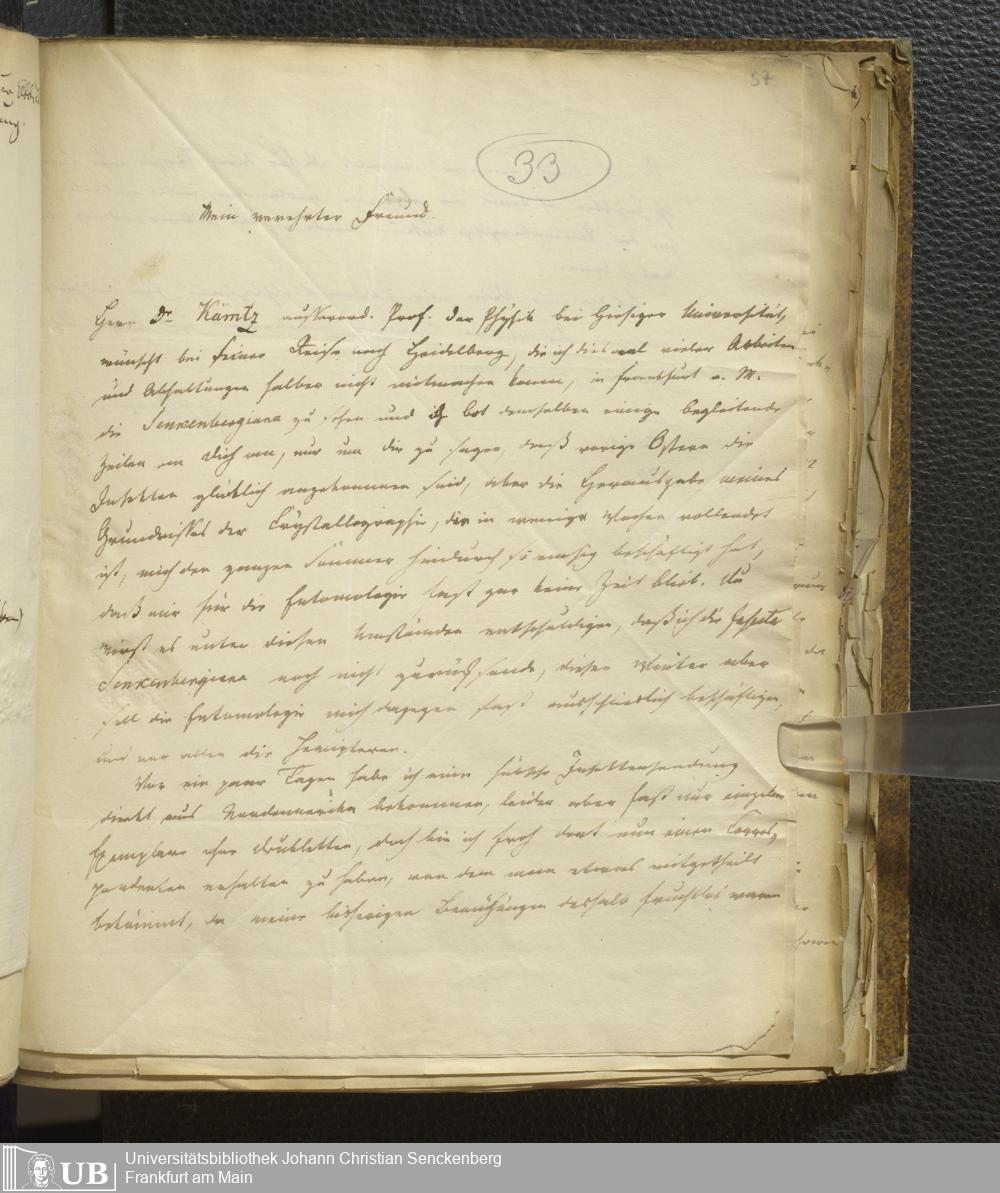 57
33
Mein verehrter Freund.
Herr Dr Kämtz ausserord. Prof. der Physik bei hiesiger Universität,
wünscht bei seiner Reise nach Heidelberg, die ich diesmal vieler Arbeiten
und Abhaltungen halber nicht mitmachen kann, in Frankfurt a. M.
die Senkenbergiana zu sehen und ich bot demselben einige begleitende
Zeilen an Dich an, nur um dir zu sagen, daß vorige Ostern die
Insekten glücklich angekommen sind, aber die Herausgabe meines
Grundrisses der Crystallographie, der in wenige Wochen vollendet
ist, mich den ganzen Sommer hindurch so emsig beschäftigt hat,
daß mir für die Entomologie fast gar keine Zeit blieb. Du
wirst es unter diesen Umständen entschuldigen, daß ich die Insecta
Senkenbergiana noch nicht zurücksende, diesen Winter aber
soll die Entomologie mich dagegen fast ausschließlich beschäftigen,
und vor allen die Hemipteren.
Vor ein paar Tagen habe ich eine hübsche Insektensendung
direkt aus Nordamerika bekommen, leider aber fast nur einzelne
Exemplare ohne Doubletten, doch bin ich froh dort nun einen Corres,
pondenten erhalten zu haben, von dem man etwas mitgetheilt
bekömmt, da meine bisherigen Bemühungen deshalb fruchtlos waren
UB
Universitätsbibliothek Johann Christian Senckenberg
Frankfurt am Main